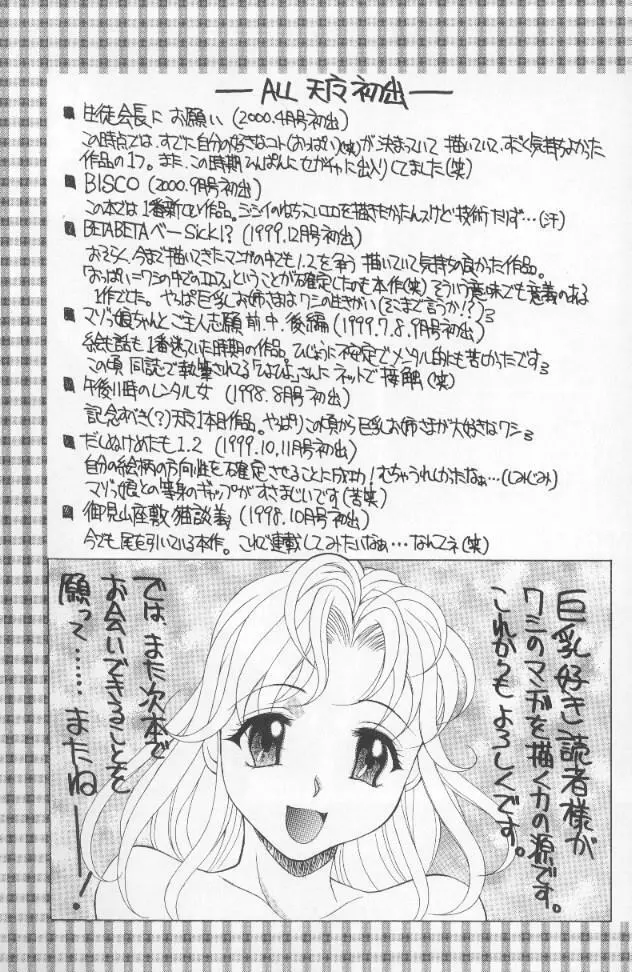 ALL 天魔 初出
■ 生徒会長に お願い (2000.4月号初出)
この時点では、すでに自分の好きなコト(おっぱい)(笑)が 決まっていて 描いていて、すごく気持ちよかった
作品の1つ。また、この時期 ひんぱんに セガチャに出入りしてました(笑)
■ BISCO (2000.9月号初出)
この本では 1番新しい作品。ジジイのねちっこいエロを描きたかったんスけど 技術たりず…(汗)
■ BETABETAベー Sick!? (1999.12月号初出)
おそらく、今まで描いてきたマンガの中でも 1.2を争う 描いていて気持ちの良かった作品。
「おっぱい=ワシの中でのエロス」ということが確定したのも本作(笑) そういう意味でも意義のある
1作でした。やっぱ巨乳お姉さまは ワシの生きがい(そこまで言うか!?)
■ マゾっ娘ちゃんとご主人志願 前.中.後編 (1999.7.8.9月号初出)
絵も話も 1番迷っていた時期の作品。ひじょうに不安定でメンタル的にも苦しかったです
この頃 同誌で執筆される「ぴよぴよ」さんに ネットで接触(笑)
■ 午後11時のレンタル女 (1998.8月号初出)
記念すべき(?)天魔1本目作品。やっぱりこの頃から巨乳お姉さまが大好きなワシ
■ だしぬけめたも1.2 (1999.10.11月号初出)
自分の絵柄の方向性を確定させることに成功!むちゃうれしかたなぁ…(しみじみ)
マゾっ娘との等身のギャップがすさまじいです(苦笑)
■ 御見山座敷猫談義 (1998.10月号初出)
今でも尾を引いている本作。これで連載してみたいなぁ…なんてネ(笑)
巨乳好き読者様が
ワシのマンガを描く力の源です。
これからもよろしくです。
では、また次本で
お会いできることを
願って……またねー!